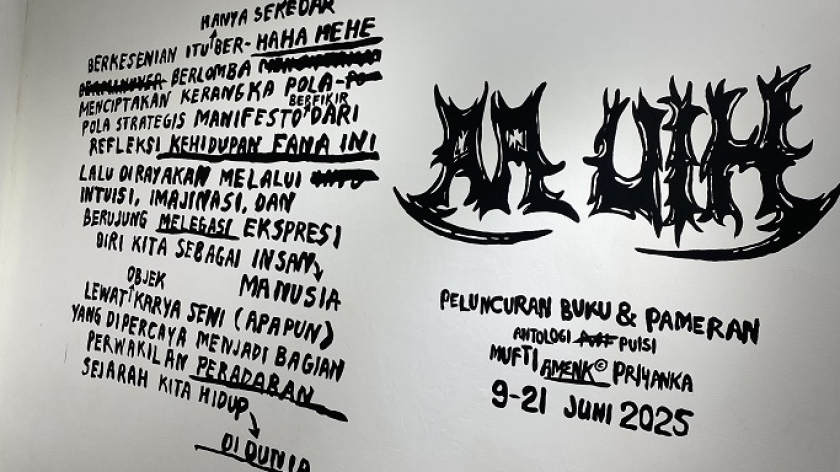 HANYA SEKEDAR
BERKESENIAN ITU BER-HAHA HEHE
BERLOMBA
MENCIPTAKAN KERANGKA POLA-
BERFIKIR
POLA STRATEGIS MANIFESTO DARI
REFLEKSI KEHIDUPAN FANA INI
LALU DIRAYAKAN MELALUI
INTUISI, IMAJINASI, DAN
BERUJUNG MELEGASI EKSPRESI
DIRI KITA SEBAGAI INSAN
MANUSIA
OBJEK
LEWAT KARYA SENI (APAPUN)
YANG DIPERCAYA MENJADI BAGIAN
PERWAKILAN PERADABAN
SEJARAH KITA HIDUP
DI DUNIA
AA UIH
PELUNCURAN BUKU & PAMERAN
ANTOLOGI PUISI
MUFTI AMENK© PRIYANKA
9-21 JUNI 2025